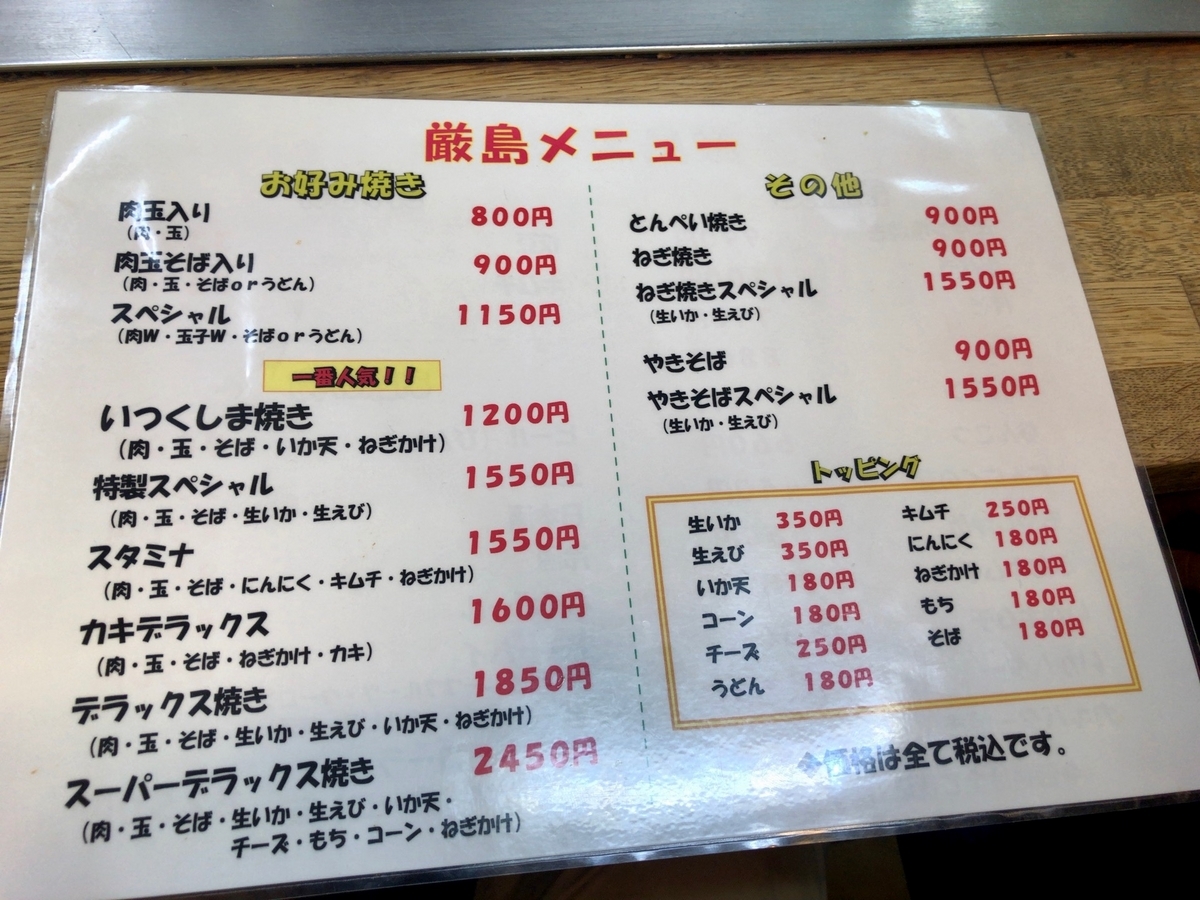 厳島メニュー
お好み焼き
肉玉入り 800円
(肉・玉)
肉玉そば入り 900円
(肉・玉・そばorうどん)
スペシャル 1150円
(肉W・玉子W・そばorうどん)
一番人気!!
いつくしま焼き 1200円
(肉・玉・そば・いか天・ねぎかけ)
特製スペシャル 1550円
(肉・玉・そば・生いか・生えび)
スタミナ 1550円
(肉・玉・そば・にんにく・キムチ・ねぎかけ)
カキデラックス 1600円
(肉・玉・そば・ねぎかけ・カキ)
デラックス焼き 1850円
(肉・玉・そば・生いか・生えび・いか天・ねぎかけ)
スーパーデラックス焼き 2450円
(肉・玉・そば・生いか・生えび・いか天・
チーズ・もち・コーン・ねぎかけ)
その他
とんぺい焼き 900円
ねぎ焼き 900円
ねぎ焼きスペシャル 1550円
(生いか・生えび)
やきそば 900円
やきそばスペシャル 1550円
(生いか・生えび)
トッピング
生いか 350円 キムチ 250円
生えび 350円 にんにく 180円
いか天 180円 ねぎかけ 180円
コーン 180円 もち 180円
チーズ 250円 そば 180円
うどん 180円
◆価格は全て税込です。